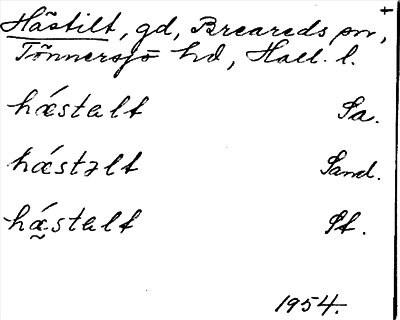 Hästilt, gd, Breareds sn, +
Tönnersjö hd, Hall. l.
hǽstalt Sa.
hǽstəlt Sand.
hǽ̰stalt St.
1954.